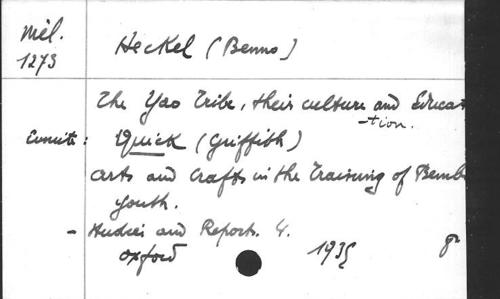 Mél.
1273
Heckel (Benno)
The Yao Tribe, their culture and Educa
-tion.
Ensuite : Quick (Griffith)
Arts and Crafts in the Training of Bemb
Youth.
- Studies and Reports. 4.
Oxford 1935 8°